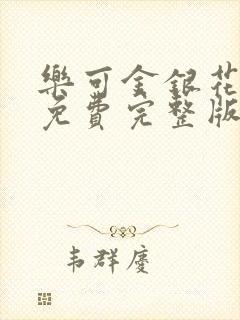 樂可金銀花
免費完整版
韦群慶